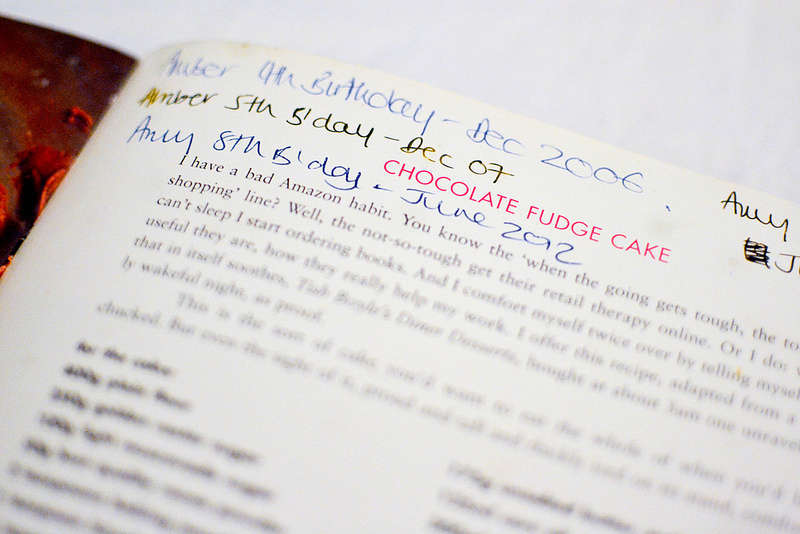 Amber 4th Birthday - Dec 2006.
Amber 5th B'day - Dec 07
Amy 8th B'day - June 2012
Amy
CHOCOLATE FUDGE CAKE
I have a bad Amazon habit. You know the ‘when the going gets tough, the to
shopping’ line? Well, the not-so-tough get their retail therapy online. Or I do: w
can’t sleep I start ordering books. And I comfort myself twice over by telling mysel
useful they are, how they really help my work. I offer this recipe, adapted from a
that in itself soothes, Tish Boyle’s Diner Desserts, bought at about 3am one unrave
ly wakeful night, as proof.
This is the sort of cake you’d want to eat the whole of when you’d
chucked. But even the sight of it, proud and tall and thickly iced on its stand, comfor
for the cake:
400g plain flour
250g golden caster sugar
100g light muscovado sugar
50g best-quality cocoa powder